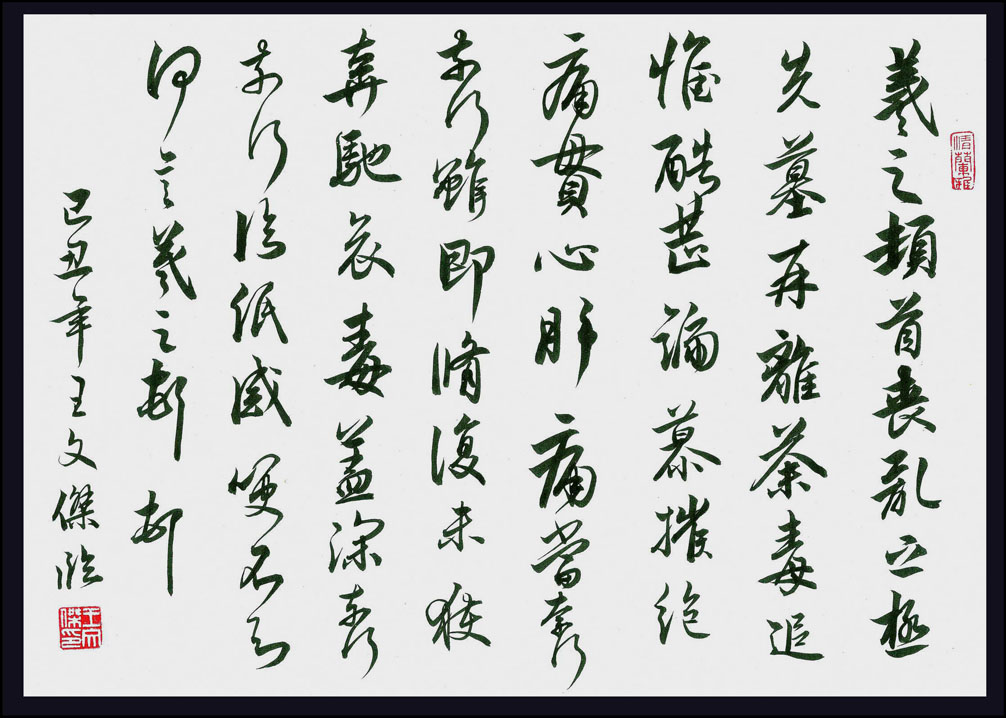 羲之頓首喪亂之極
先墓再離荼毒追
惟酷甚號慕摧絕
痛貫心肝痛當奈何
奈何雖即脩復未獲
奔馳哀毒益深奈何
奈何臨紙感哽不知
何言羲之頓首頓首
己丑年王文傑臨
王文傑印